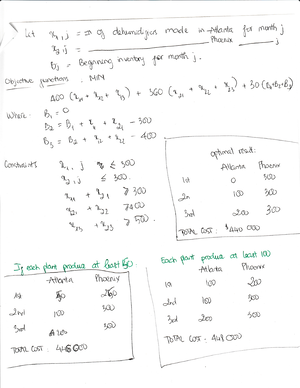 Let x1,j = # of dehumidifiers made in Atlanta for month j
x2,j = ___ Phoenix ___ j
Bj = Beginning inventory for month j.
Objective functions. MIN
400 (x11 + x12 + x13) + 360 (x21 + x22 + x23) + 30 (B1+B2+B3)
Where: B1 = 0
B2 = B1 + x11 + x21 - 300
B3 = B2 + x12 + x22 - 400
Constraints x1,j ≤ 500
x2,j ≤ 300
x11 + x21 ≥ 300
x12 + x22 ≥ 400
x13 + x23 ≥ 500.
optimal result:
Atlanta Phoenix
1st 0 300
2n 100 300
3rd 200 300
TOTAL COST: $440 000
If each plant produce at least 50.
Atlanta Phoenix
1st 50 250
2nd 100 300
3rd 200 300
TOTAL COST:
Each plant produce at least 100
Atlanta Phoenix
1st 100 200
2nd 100 300
3rd 200 300
TOTAL COST: